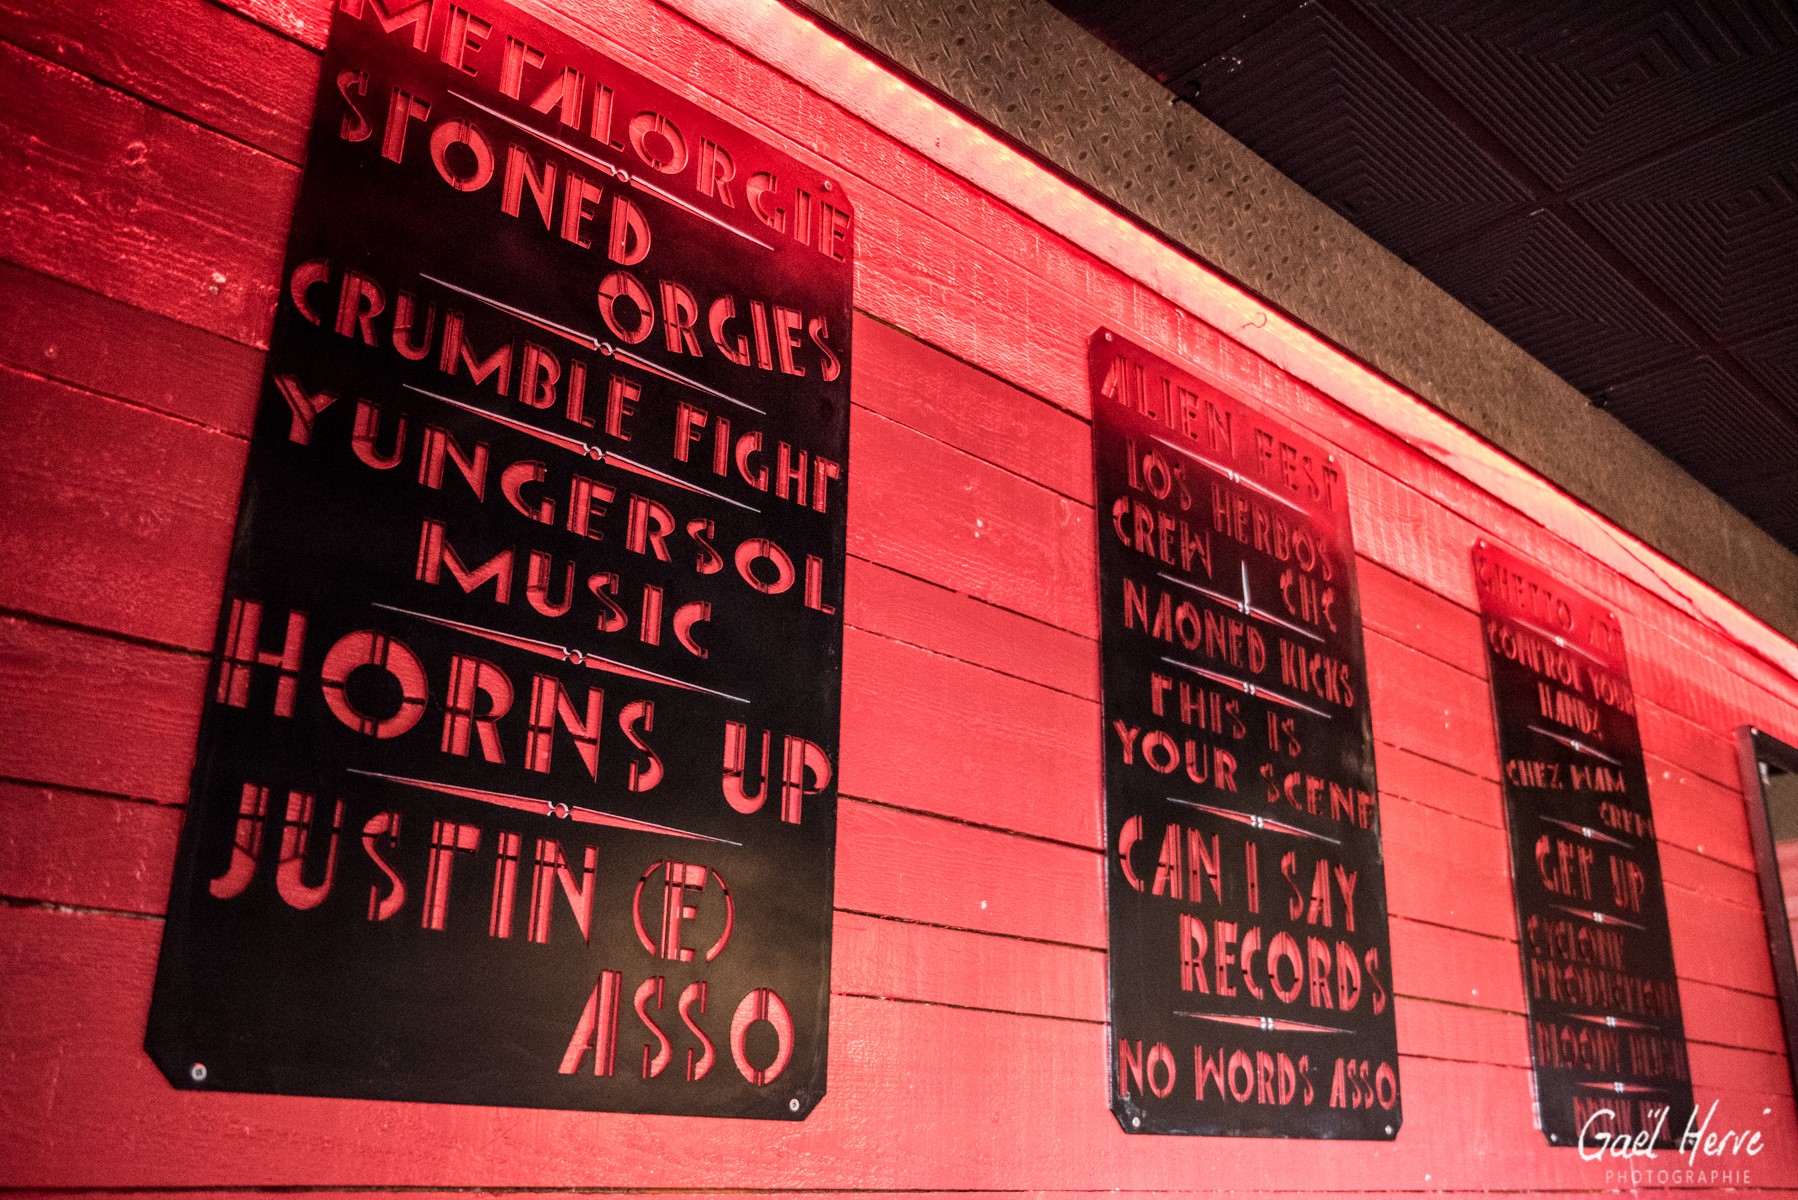 METALORGIE
STONED
ORGIES
CRUMBLE FIGHT
YUNGERSOL
MUSIC
HORNS UP
JUSTIN (E)
ASSO
ALIEN FEST
LOS HERBOS
CREW | CHC
NAONED KICKS
THIS IS
YOUR SCENE
CAN I SAY
RECORDS
NO WORDS ASSO
GHETTO ART
CONTROL YOUR
HANDZ
CHEZ MAM
CREW
GET UP
CYCLONE
PRODUCTION
BLOODY
Gaël Hervé
PHOTOGRAPHIE